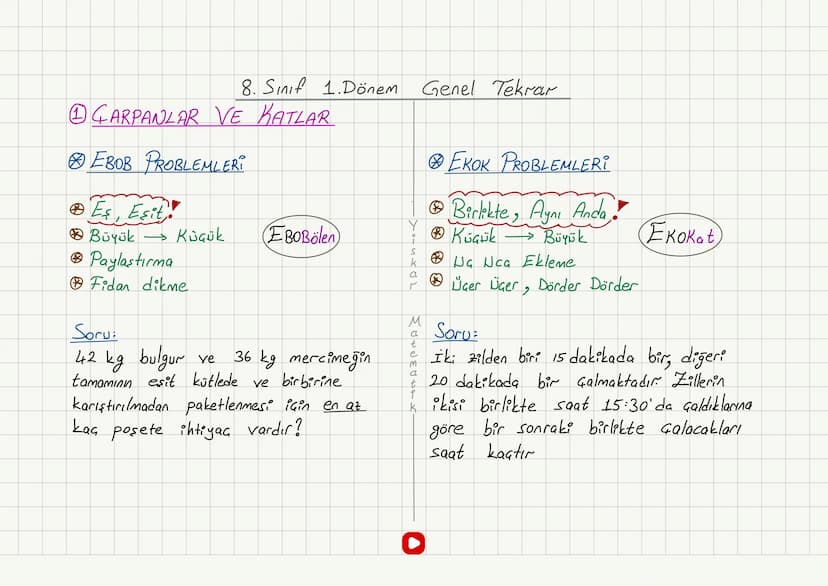 8. Sınıf 1.Dönem Genel Tekrar
① ÇARPANLAR VE KATLAR
EBOB PROBLEMLERİ
Eş, Eşit!
Büyük → Küçük
Paylaştırma
Fidan dikme
EBOBölen
Soru:
42 kg bulgur ve 36 kg mercimeğin
tamamının eşit kütlede ve birbirine
karıştırılmadan paketlenmesi için en az
kaç poşete ihtiyaç vardır?
Yiskar Matematik
EKOK PROBLEMLERİ
Birlikte, Aynı Anda!
Küçük → Büyük
Uç Uca Ekleme
Üçer Üçer, Dörder Dörder
EKOKat
Soru:
İki zilden biri 15 dakikada bir, diğeri
20 dakikada bir çalmaktadır Zillerin
ikisi birlikte saat 15:30'da çaldıklarına
göre bir sonraki birlikte çalacakları
saat kaçtır